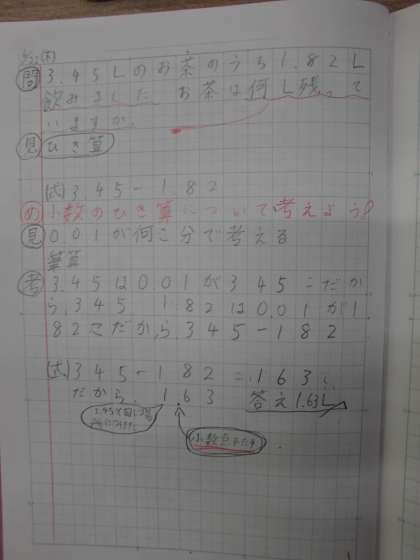 問 3.45Lのお茶のうち1.82L
飲みました。お茶は何L残って
いますか。
見 ひき算
(式)3.45-1.82
め 小数のひき算について考えよう
見 0.01が何こ分で考える
筆算
考 3.45は0.01が345こだか
ら、345 1.82は0.01が1
82こだから345-182
(式)345-182=163
だから、1.63 答え1.63L
小数点をたす